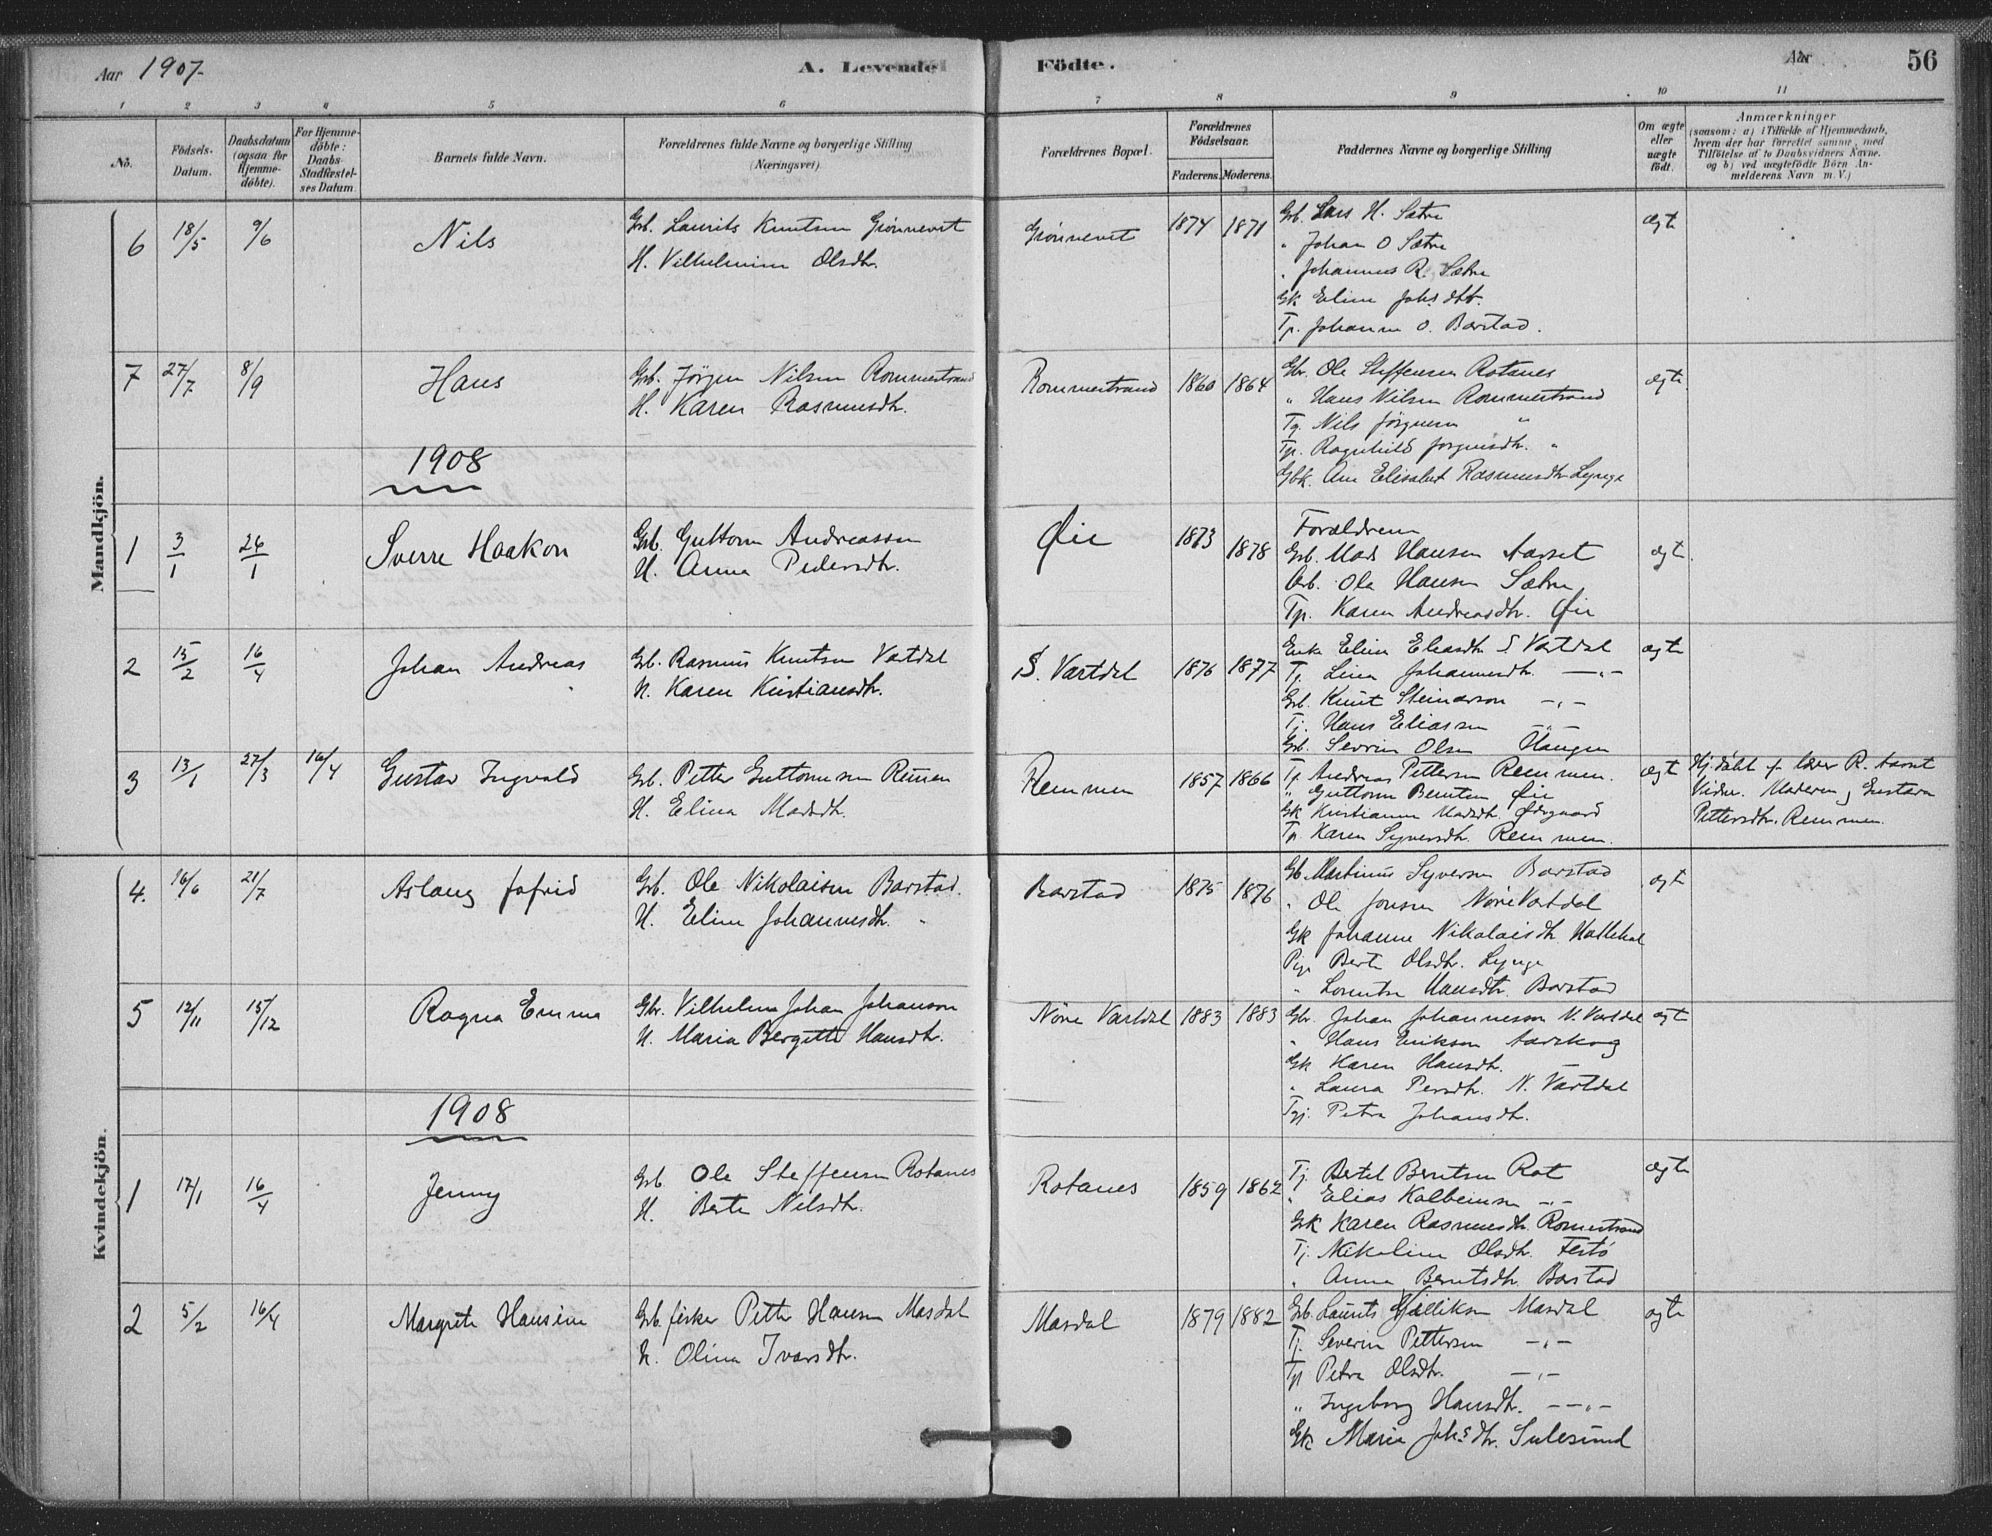 Aar 1907.
A. Levende Födte.
Aar
56
1 2 3 4 5 6 7 8 9 10 11
No.
Födsels-Datum.
Daabsdatum (ogsaa for Hjemme-döbte).
For Hjemme-döbte: Daabs-Stadfæstel-ses Datum.
Barnets fulde Navn.
Forældrenes fulde Navne og borgerlige Stilling (Næringsvei).
Forældrenes Bopæl.
Forældrenes Födselsaar.
Faderens. Moderens.
Faddernes Navne og borgerlige Stilling
Om ægte eller uægte födt.
Anmærkninger
(saasom: a) i Tilfælde af Hjemmedaab,
hvem der har forrettet samme, med
Tilföielse af to Daabsvidners Navne.
og b) ved uægtefödte Börn An-
melderens Navn m. V.)
Mandkjön.
6 18/5 9/6 Nils
Grb. Laurits Knutsen Grönnevet
H. Vilhelmine Olsdtr.
Grönnevet 1874 1871
Grb. Lars H. Sætre
" Johan O Sætre
" Johannes R. Sætre
Gk Eline Johs dtt.
Tp. Johanne O. Barstad.
ægte
7 27/7 8/9 Hans
Grb. Jörgen Nilsen Rommestrand
H. Karen Rasmusdtr.
Rommestrand 1860 1864
Gbr. Ole Steffensen Rotanes
" Hans Nilsen Rommestrand
Tg. Nils Jörgnsen "
Tp. Ragnhild Jorgensdtr. "
Gbk. Ane Elisabet Rasmusdtr Lynge
ægte.
1908
1 3/1 26/1 Sverre Haakon
Grb. Guttorm Andreassen
H. Anna Pedersdtr.
Öie 1873 1878
Forældrene
Grb. Mads Hansen Aarset
Grb. Ole Hansen Sætre
Tp. Karen Andreasdtr. Öie
ægte.
2 15/2 16/4 Johan Andreas
Grb. Rasmus Knutsen Vartdal
H. Karen Kristiansdtr.
S. Vartdal 1876 1877
Enke Eline Eleasdtr S Vartdal
Tj. Lina Johannesdtr. — " —
Grb. Knut Steinarson — " —
Tj. Hans Eliassen — " —
Grb. Sevrin Olsen Haugen
ægte
3 13/1 27/3 16/4 Gustav Ingvald
Grb. Petter Guttormsen Remen
H. Elina Madsdtr.
Remmen 1857 1866
Tj. Andreas Pettersen Remmen.
" Guttorm Berntsen Öie
Gk Kristianne Madsdtr. Ödegaard
Tp. Karen Syversdtr. Remmen.
ægte
Hj.döbt f. lærer R. Aarset
Vidner. Moderen, Gustava
Pettersdtr. Remmen.
Kvindekjön.
4. 16/6 21/7 Aslaug Jofrid
Grb. Ole Nikolaisen Barstad.
H. Eline Johannesdtr. "
Barstad 1875 1876
Gb. Martinus Syversen Barstad
" Ole Jonsen Nörе Vartdal
Gk Johanne Nikolaisdtr. Hallekal
Pige Berte Olsdtr. Lynge
" Lorentse Hansdtr. Barstad
ægte
5 12/11 15/12 Ragna Emma
Gbr. Vilhelm Johan Johanson
H. Maria Bergitte Hansdtr.
Nöre Vartdal 1883 1883
Gbr. Johan Johannesson N. Vartdal
" Hans Erikson Aarskog
Gk Karen Hansdtr.
" Laura Persdtr. N. Vartdal
Tpj. Petra Johansdtr.
ægte
1908
1 17/1 16/4 Jenny
Grb. Ole Steffensen Rotanes
H. Berte Nilsdtr.
Rotanes 1859 1862
Tj. Bertel Berntsen Rot
" Elias Kolbeinsen — " —
Grk Karen Rasmusdtr. Romestrand
Tj. Nikoline Olsdtr. Festö
" Anna Berntsdtr. Barstad
ægte
2 5/2 16/4 Margrete Hansine
Grb. fisker Petter Hansen Masdal
H. Olina Ivarsdtr.
Masdal 1879 1882
Grb. Laurits Masdal
Tj. Severin Pettersen — " —
Tp Petra Olsdtr. — " —
" Ingeborg Hansdtr. — " —
Gk Marie Johs dtr. Sulesund
ægte